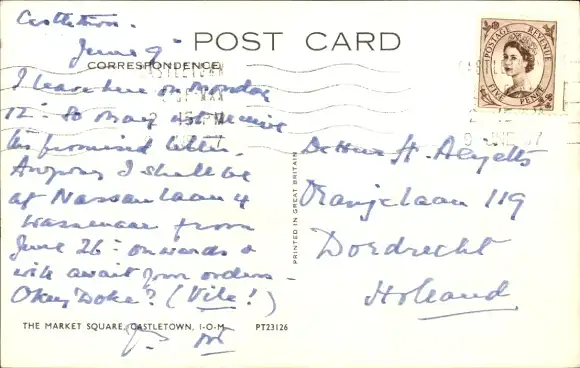 Castletown.
June 9
POST CARD
CORRESPONDENCE
I leave here on Monday
12 so may not receive
promised letter.
Anyway I shall be
at Nassaulaan 4
Wassenaar from
June 26 onwards &
will await your orders -
Okey Doke? (Vile!)
THE MARKET SQUARE, CASTLETOWN, I-O-M. PT23126
PRINTED IN GREAT BRITAIN
POSTAGE REVENUE
FIVE PENCE
2 45 PM
9 JNE
De Heer H.
Oranjelaan 119
Dordrecht
Holland